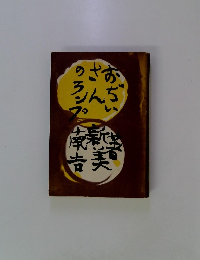 おぢい
さん
のランプ
新美
南吉
著